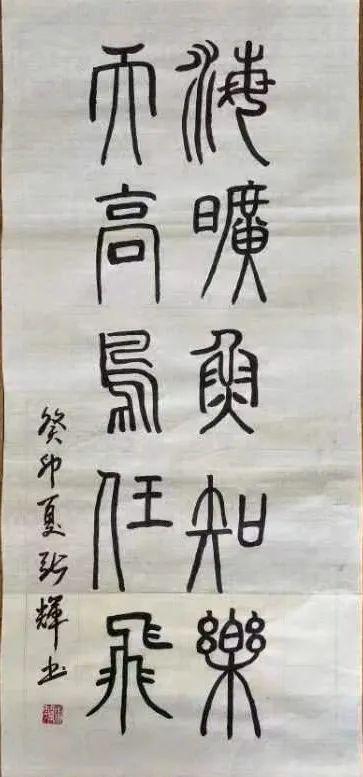 海曠魚知樂
天高鳥任飛
癸卯夏 輝書